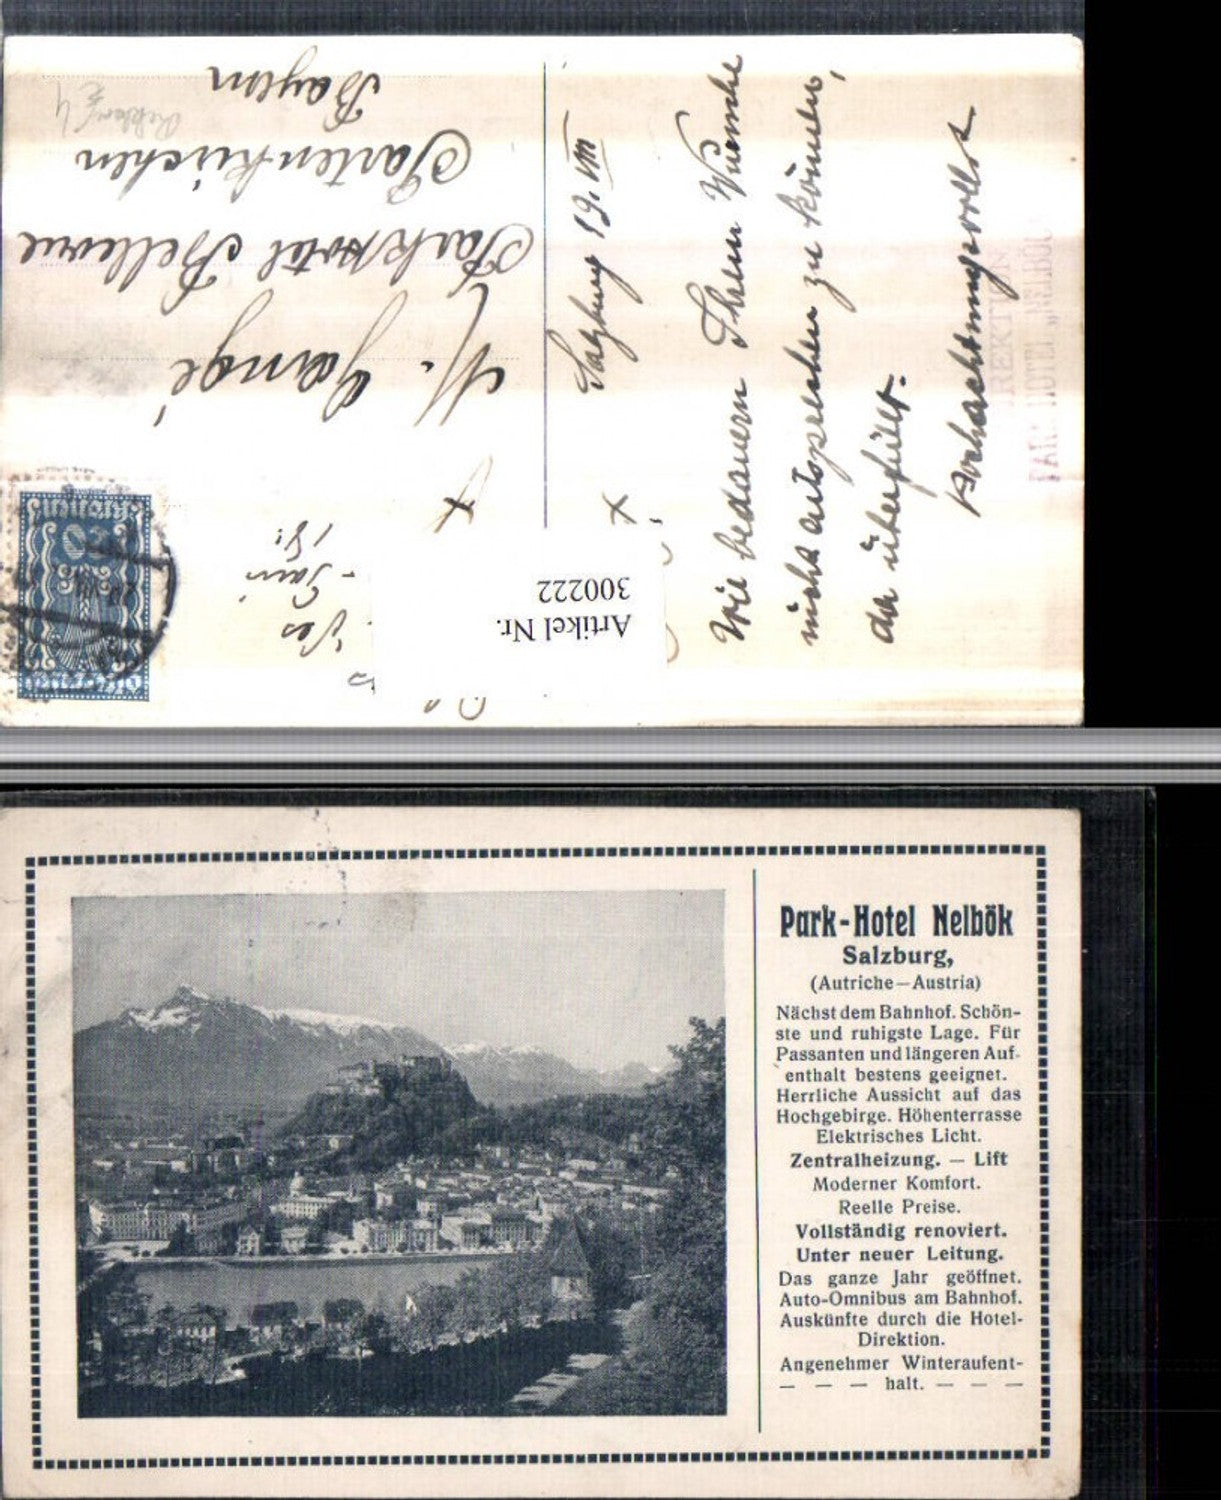 H. Gangé
Parkhotel Bellevue
Partenkirchen
Bayern
Salzburg 19. VIII
Wir bedauern Ihrem Wunsche
nicht entsprechen zu können,
da überfüllt.
Hochachtungsvollst
DIREKTION
PARK-HOTEL „NELBÖCK
Artikel Nr.
300222
Park-Hotel Nelbök
Salzburg,
(Autriche—Austria)
Nächst dem Bahnhof. Schön-
ste und ruhigste Lage. Für
Passanten und längeren Auf-
enthalt bestens geeignet.
Herrliche Aussicht auf das
Hochgebirge. Höhenterrasse
Elektrisches Licht.
Zentralheizung. — Lift
Moderner Komfort.
Reelle Preise.
Vollständig renoviert.
Unter neuer Leitung.
Das ganze Jahr geöffnet.
Auto-Omnibus am Bahnhof.
Auskünfte durch die Hotel-
Direktion.
Angenehmer Winteraufent-
— — — halt. — — —